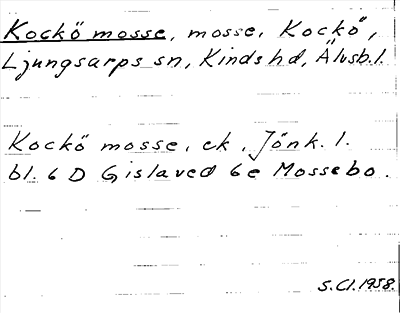 Kockö mosse, mosse, Kockö,
Ljungsarps sn, Kinds hd, Älvsb. l.
Kockö mosse, ek. Jönk. l.
bl. 6 D Gislaved 6e Mossebo.
S. Cl. 1958.